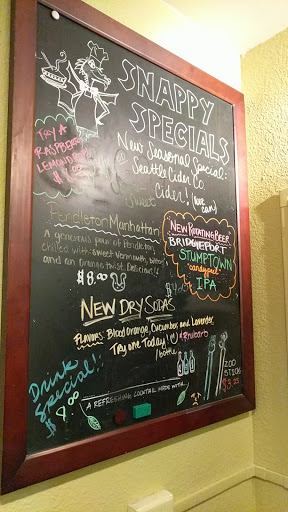 SNAPPY
SPECIALS
TRY A
RASPBERRY
LEMONDROP
New Seasonal Special:
Seattle Cider Co.
Sweet Cider! (can)
Pendleton Manhattan
A generous pour of Pendleton,
chilled with sweet vermouth, bitters,
and an orange twist. Delicious!!
$8.00
NEW ROTATING BEER
BRIDGEPORT
STUMPTOWN
"candy peel"
IPA
NEW DRY SODAS
Flavors: Blood Orange, Cucumber, and Lavender,
Try one Today! & Rhubarb
/bottle
Drink
Special!
$8.00
A REFRESHING COCKTAIL MADE WITH...
ZOO
STICKS
$3.25